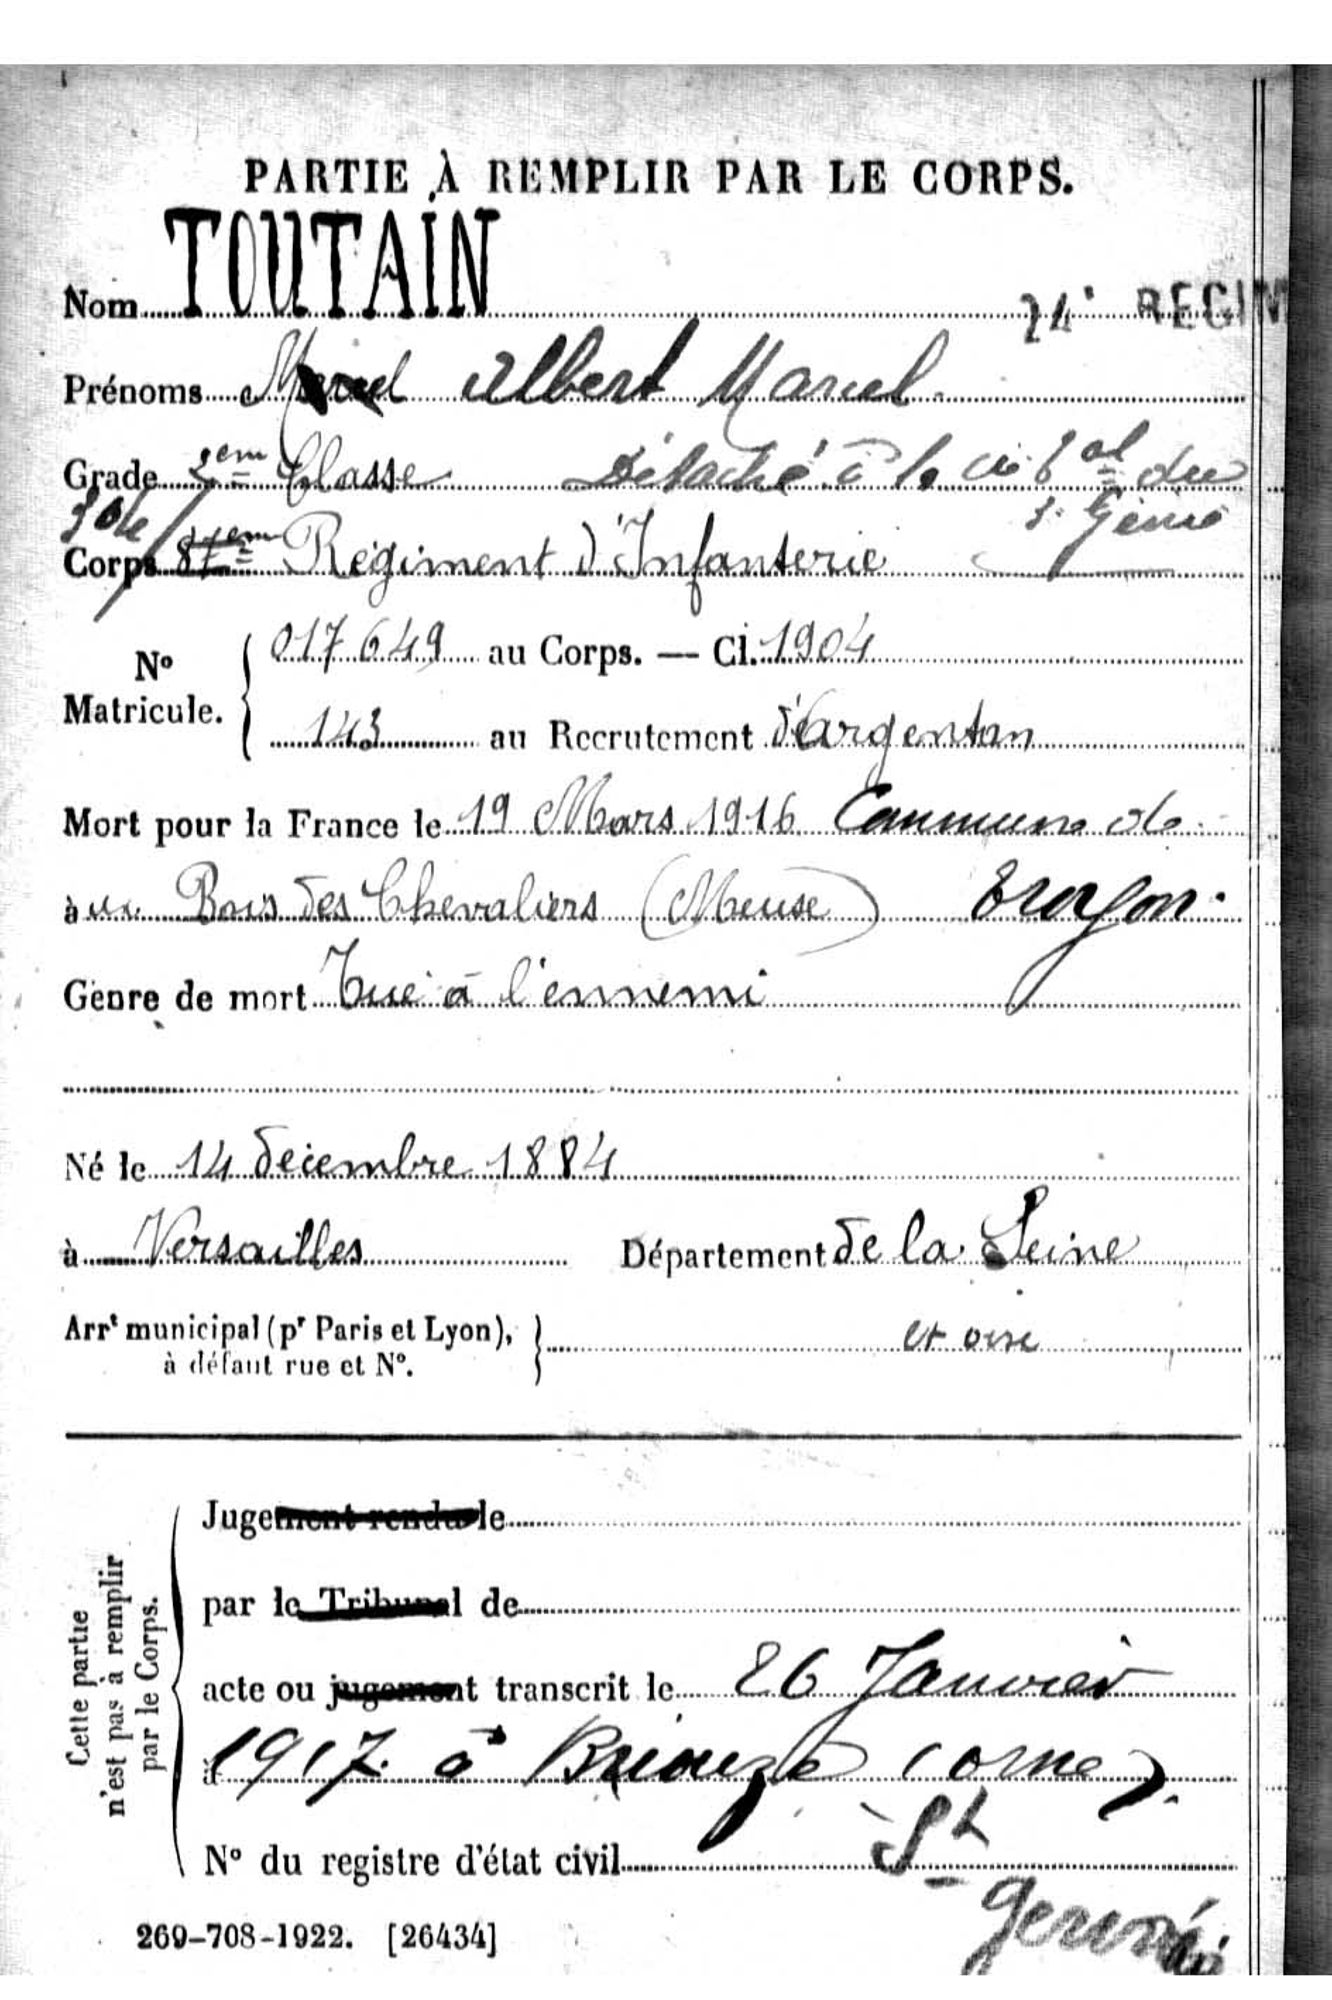 PARTIE À REMPLIR PAR LE CORPS.
Nom TOUTAIN
24e REGIM
Prénoms Marcel Albert Marcel.
Grade 2em Classe Détaché à la cie 6 du
3e Génie
Corps 87em Régiment d'Infanterie
No Matricule. 017649 au Corps. — Cl. 1904
143 au Recrutement d'Argentan
Mort pour la France le 19 Mars 1916 Commune de
àux Bois des Chevaliers (Meuse) Troyon.
Genre de mort Tué à l'ennemi
Né le 14 décembre 1884
à Versailles Département de la Seine
Arrt municipal (pr Paris et Lyon), et oise
à défaut rue et No.
Cette partie n'est pas à remplir par le Corps.
Jugement rendu le
par le Tribunal de
acte ou jugement transcrit le 26 Janvier
à 1917 à Briouze (orne).
No du registre d'état civil
St
269-708-1922. [26434]